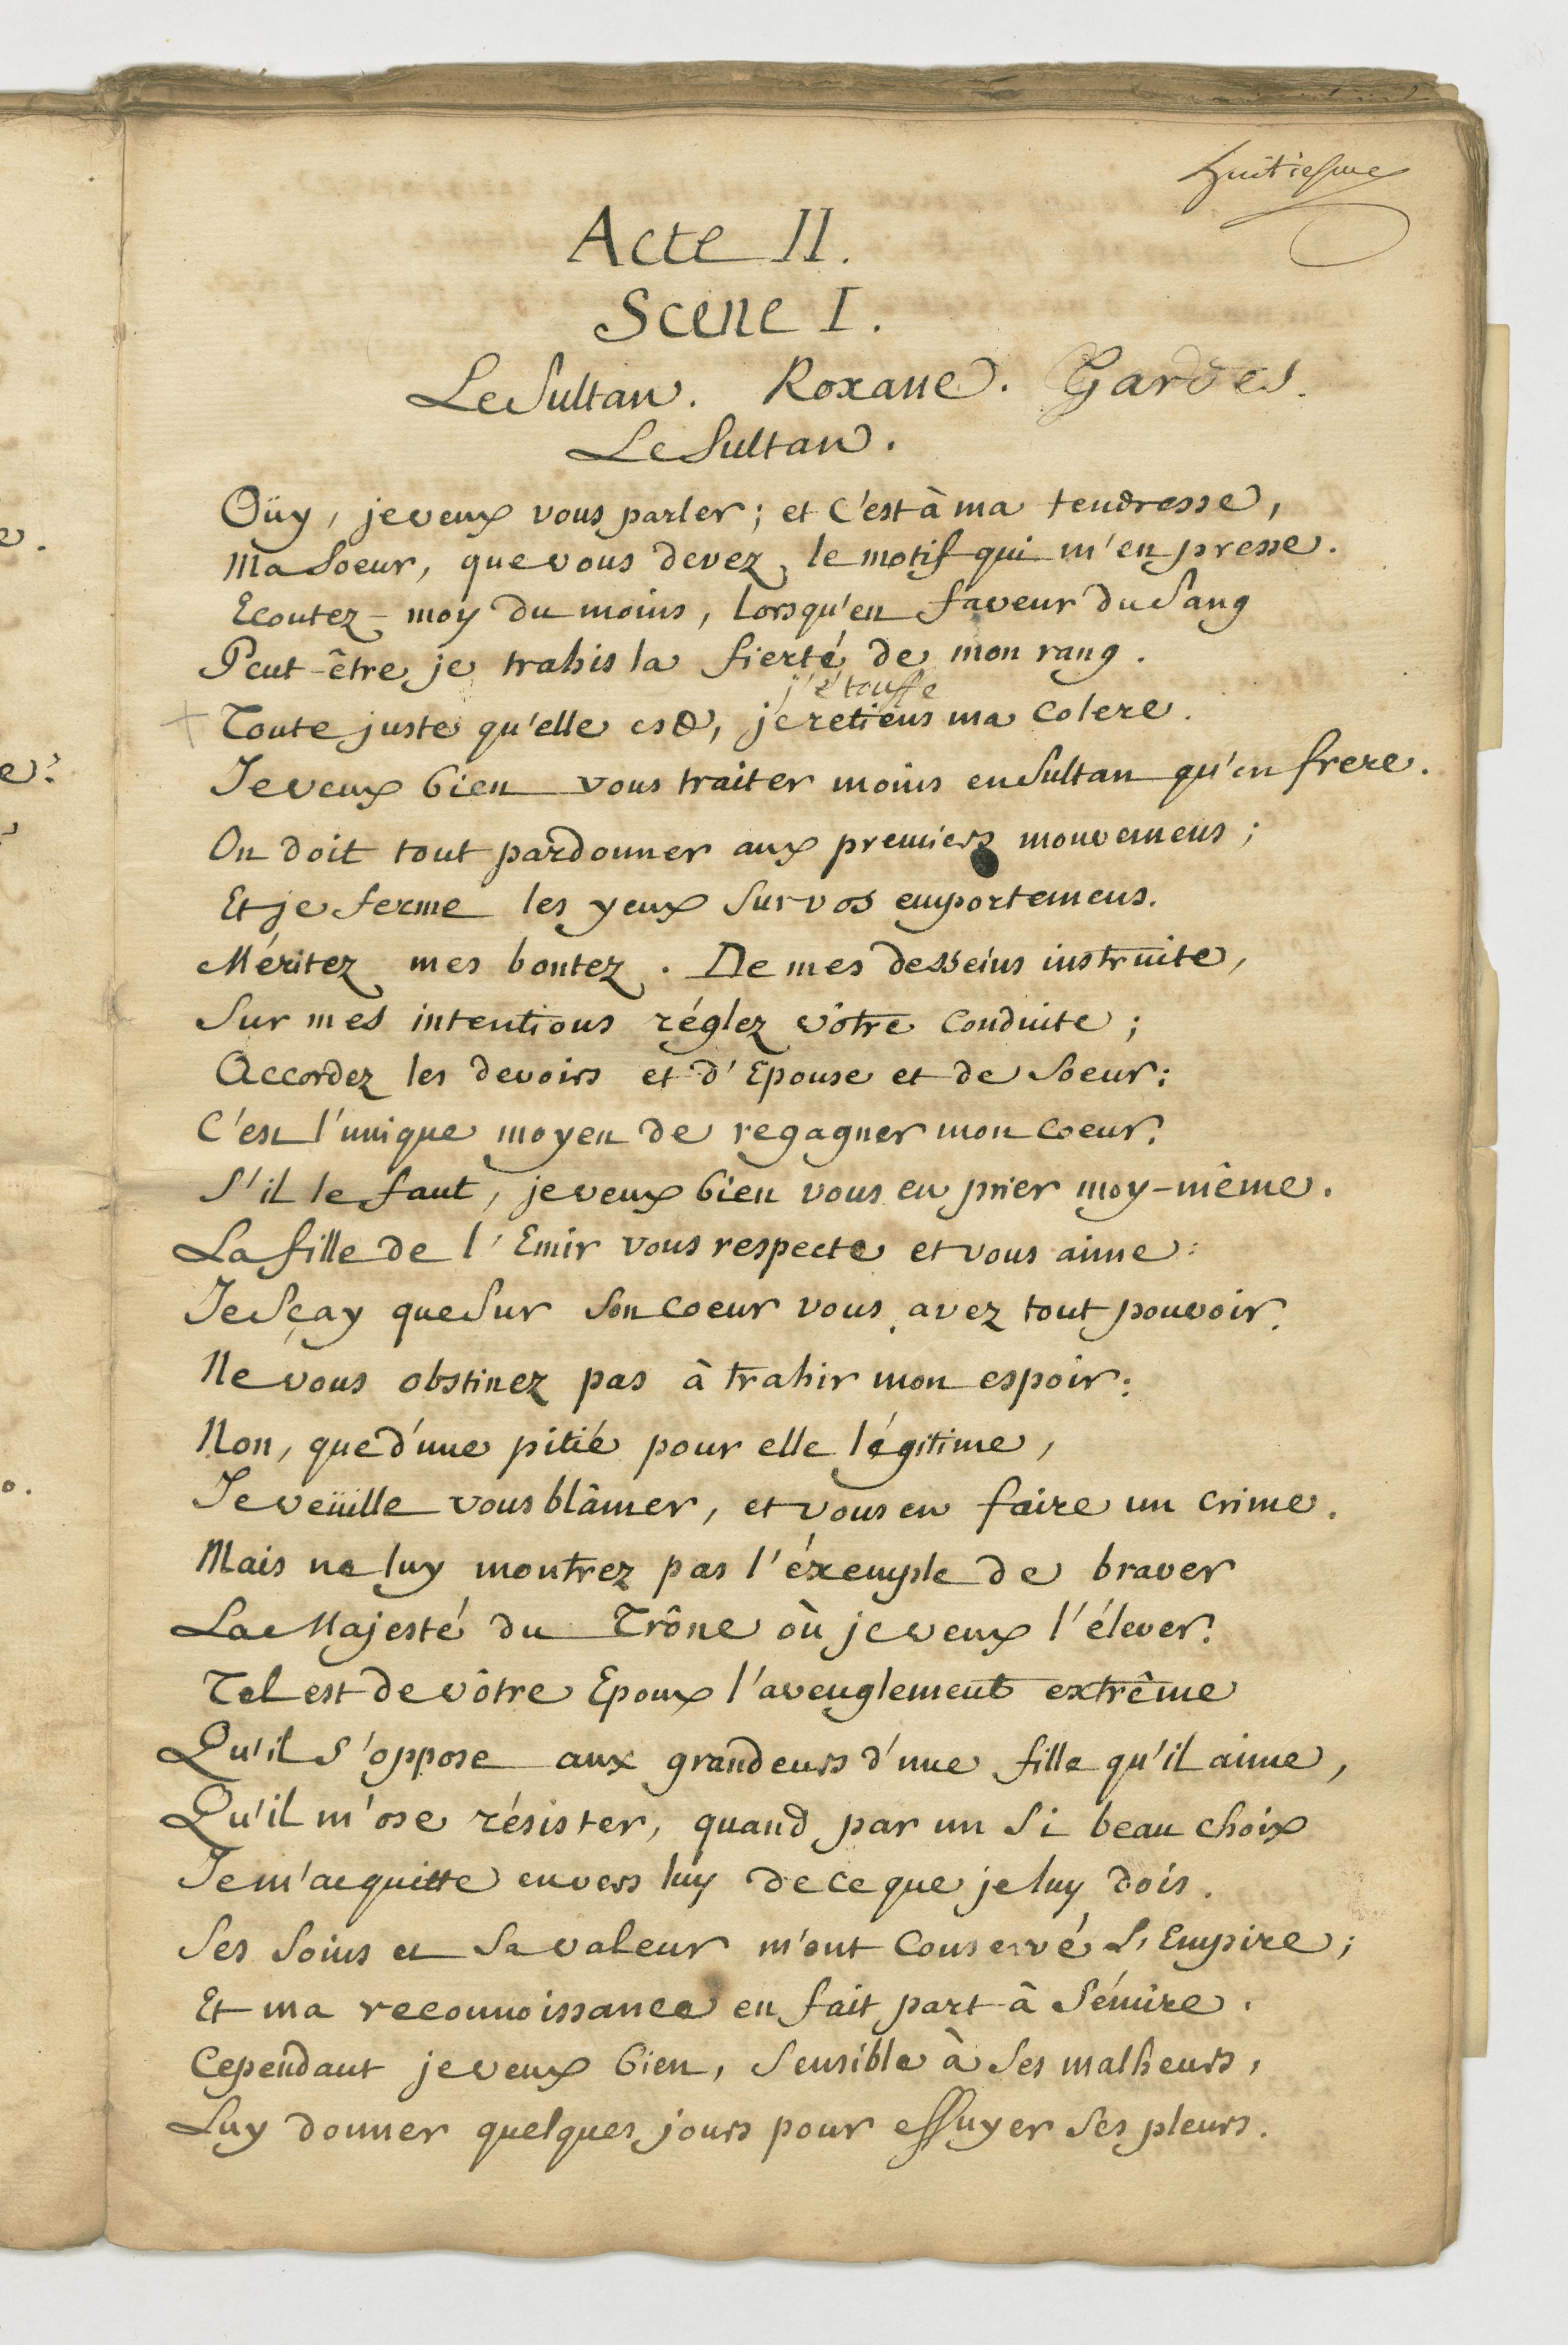 huitiesme
Acte II.
Scene I.
Le Sultan. Roxane. Gardes.
Le Sultan.
Oüy, je veux vous parler; et c'est à ma tendresse,
Ma Soeur, que vous devez le motif qui m'en presse.
Ecoutez-moy du moins, lorsqu'en faveur du Sang
Peut-être je trahis la fierté de mon rang.
j'étouffe
+ Toute juste qu'elle est, je retiens ma colere.
Je veux bien vous traiter moins en Sultan qu'en frere.
On doit tout pardonner aux premiers mouvemens;
Et je ferme les yeux Sur vos emportemens.
Méritez mes bontez. De mes desseins instruite,
Sur mes intentions réglez vôtre conduite;
Accordez les devoirs et d'Epouse et de Soeur:
C'est l'unique moyen de regagner mon coeur.
S'il le faut, je veux bien vous en prier moy-même.
La fille de l'Emir vous respecte et vous aime:
Je Sçay que Sur Son coeur vous avez tout pouvoir.
Ne vous obstinez pas à trahir mon espoir:
Non, que d'une pitié pour elle légitime,
Je veüille vous blâmer, et vous en faire un crime.
Mais ne luy montrez pas l'éxemple de braver
La Majesté du Trône où je veux l'élever.
Tel est de vôtre Epoux l'aveuglement extrême
Qu'il S'oppose aux grandeurs d'une fille qu'il aime,
Qu'il m'ose résister, quand par un Si beau choix
Je m'acquitte envers luy de ce que je luy dois.
Ses Soins et Sa valeur m'ont conservé L'Empire;
Et ma reconnoissance en fait part à Sémire.
Cependant je veux bien, Sensible à Ses malheurs,
Luy donner quelques jours pour essuyer Ses pleurs.